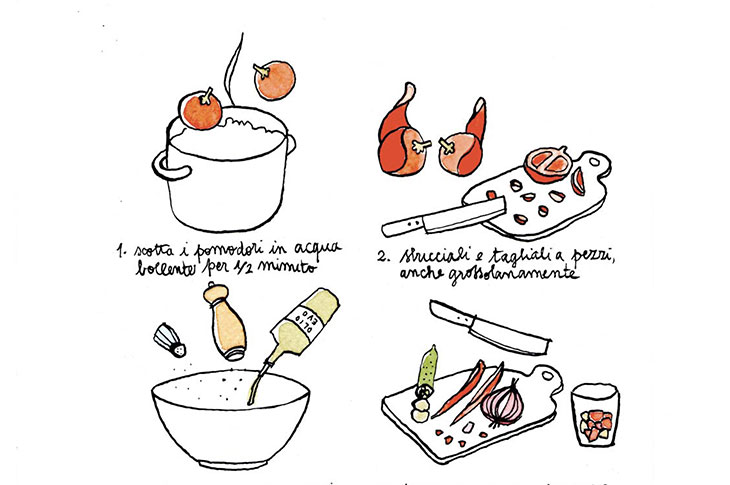 1. scotta i pomodori in acqua
bollente per 1/2 minuto
2. sbucciali e tagliali a pezzi,
anche grossolanamente
OLIO
EVO